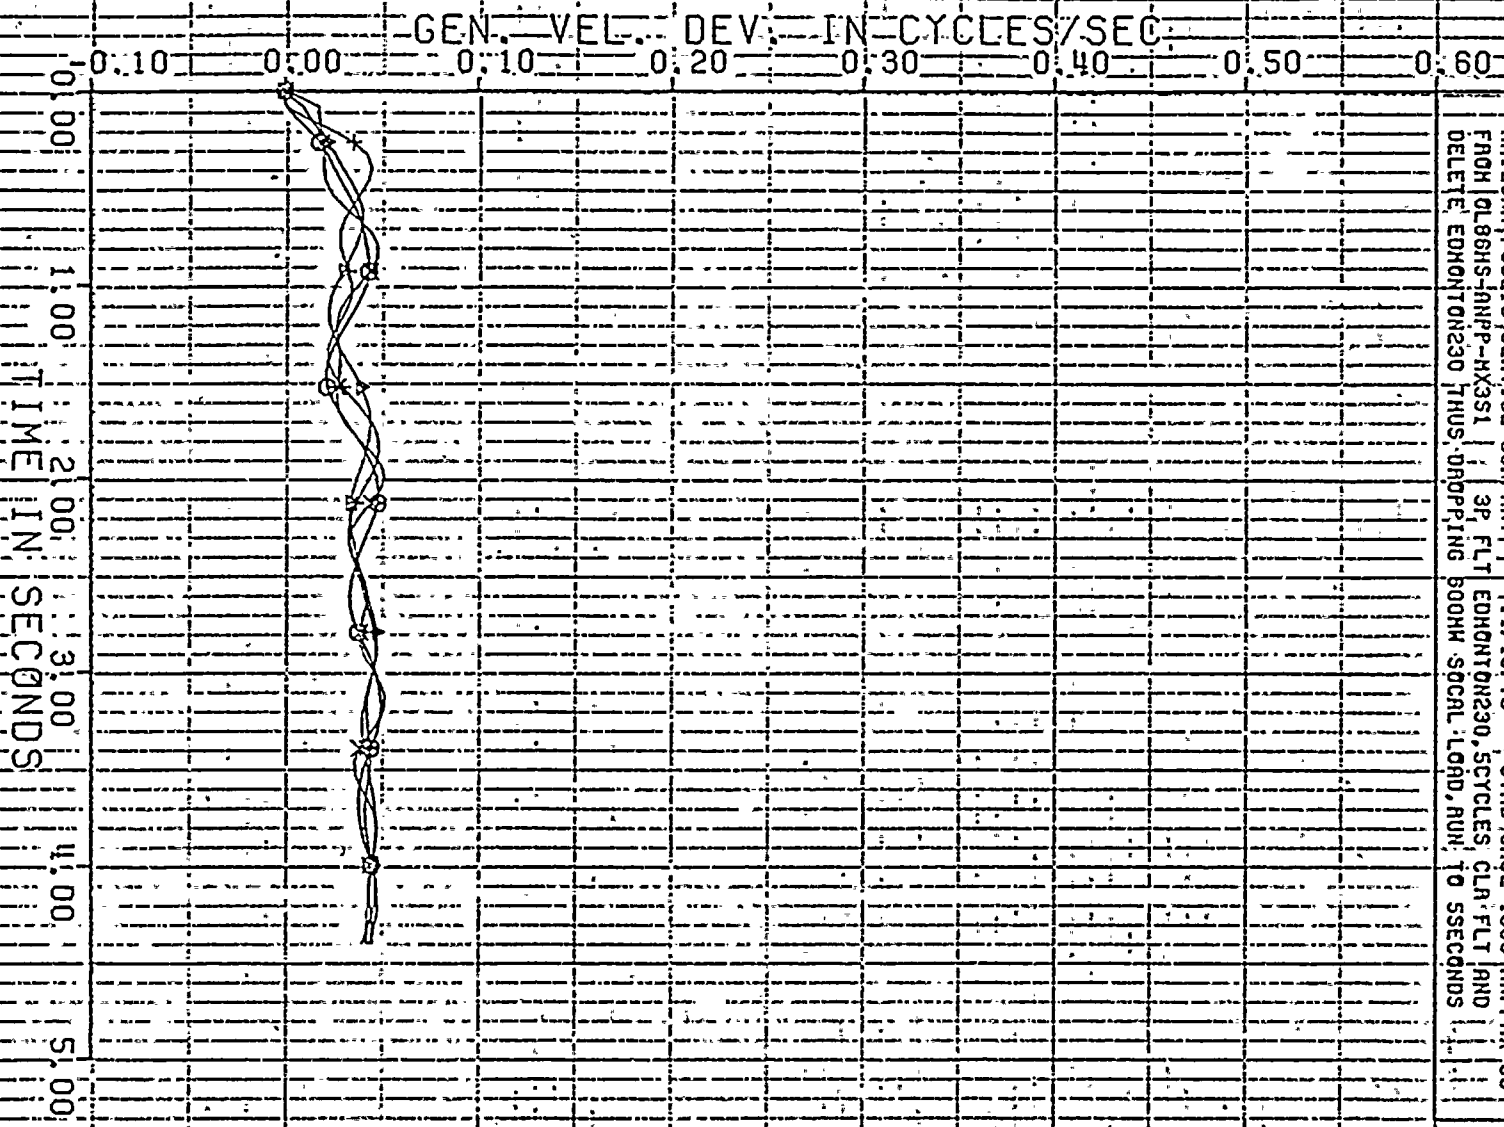 GEN. VEL. DEV. IN CYCLES/SEC
-0.10 0.00 0.10 0.20 0.30 0.40 0.50 0.60
0.00 1.00 2.00 3.00 4.00 5.00
TIME IN SECONDS
3P FLT EDMONTON230,5CYCLES CLR FLT AND
DELETE EDMONTON230 THUS DROPPING 600MW SOCAL LOAD,RUN TO 5SECONDS